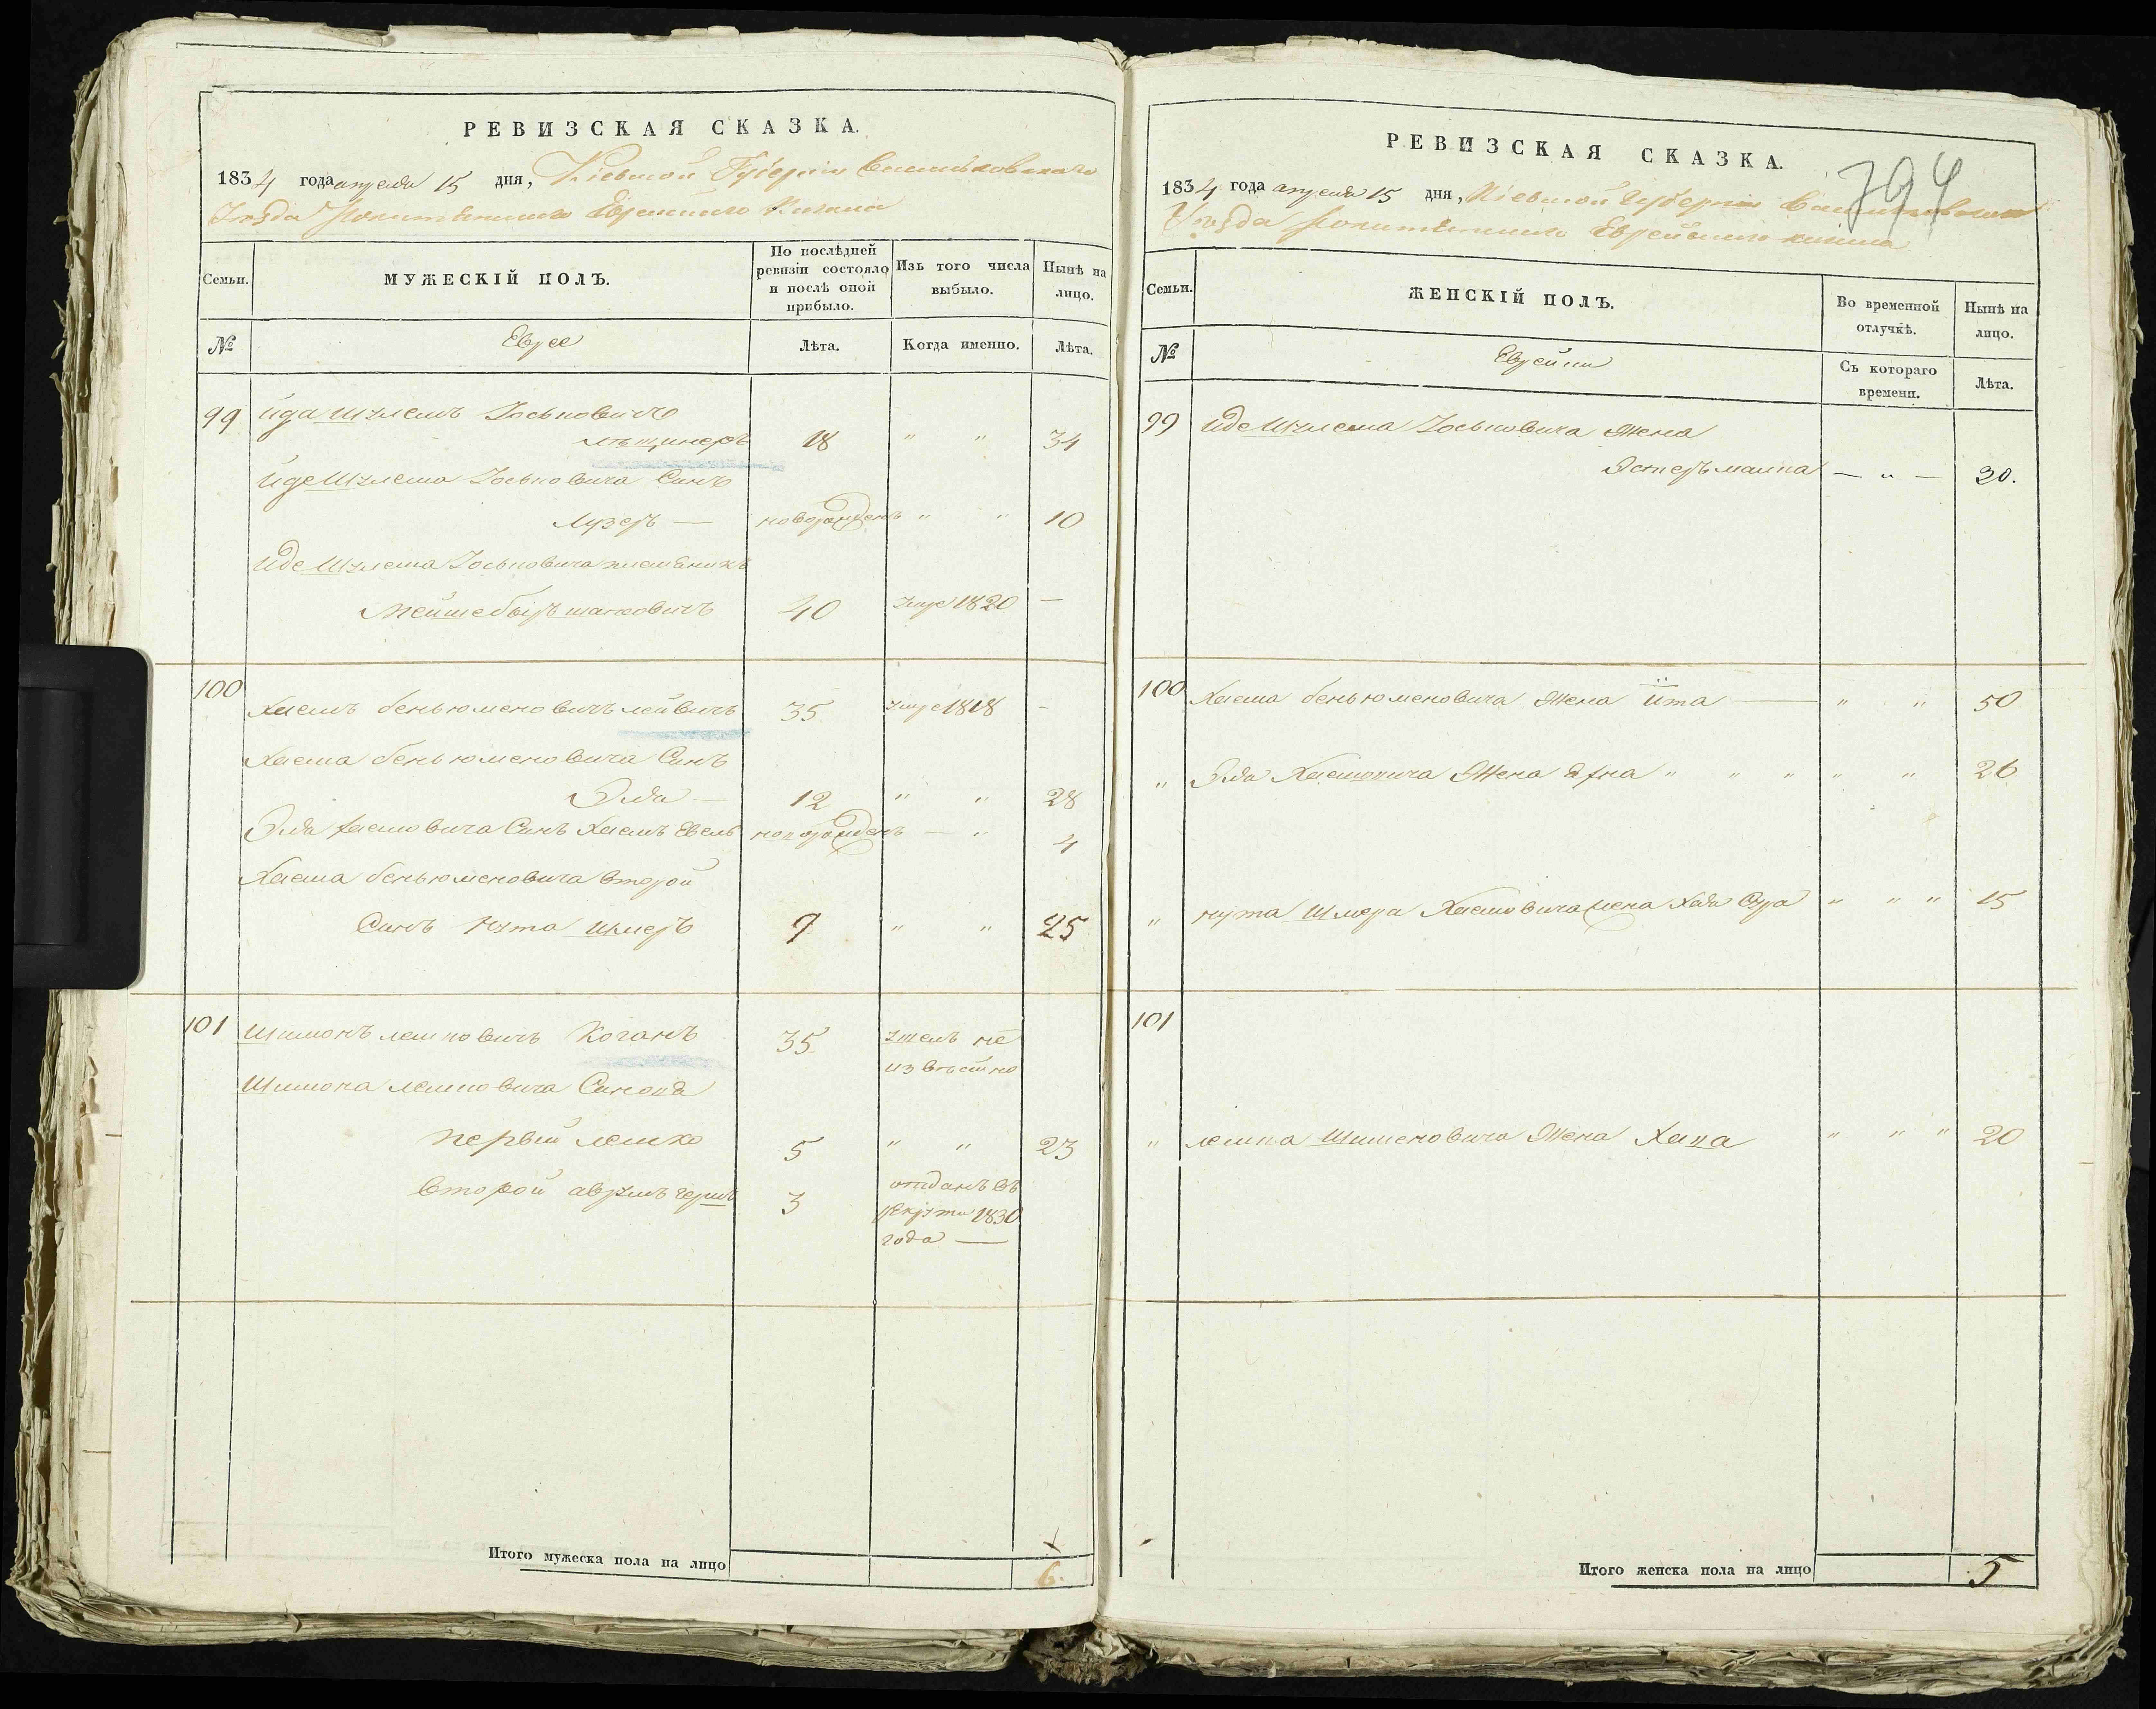 РЕВИЗСКАЯ СКАЗКА.
1834 года апреля 15 дня, Кіевской Губерніи Васильковскаго
Уезда Рокитянского Еврейского Кагала
Семьи. МУЖЕСКІЙ ПОЛЪ. По послѣдней ревизіи состояло и послѣ оной прибыло. Изъ того числа выбыло. Нынѣ на лицо.
№ Еврее Лѣта. Когда именно. Лѣта.
99 Идашулемъ Іоськовичъ
18 " " 34
Идешулема Іоськовича Синъ
Лузеръ — новорожденъ " " 10
Идешулема Іоськовича племеникъ
Мейшебыръ 40 умре 1820 —
100 Хаемъ беньюменовичъ лейвичъ 35 умре 1818 -
Хаема беньюменовича Синъ
Элда — 12 " " 28
Элда Хаемовича Синъ Хаемъ Евель новорожденъ — " 4
Хаема беньюменовича второй
Синъ Нута Шмеръ 9 " " 25
101 Шимонъ лейковичъ Коганъ 35 ушелъ не
извѣстно
Шимона лейковича Синовя
первий лейко 5 " " 23
второй аврумъ герш 3 отданъ въ
рекруты 1830
года —
Итого мужеска пола на лицо 6.
РЕВИЗСКАЯ СКАЗКА.
794
1834 года апреля 15 дня, Кіевской Губерніи Васильковского
Уезда Рокитянского Еврейского кагала
Семьи. ЖЕНСКІЙ ПОЛЪ. Во временной отлучкѣ. Нынѣ на лицо.
№ Еврейки Съ котораго времени. Лѣта.
99 Идешулема Іоськовича Жена
Эстеръ малка — " — 30.
100 Хаема беньюменовича Жена Ита — " " 50
" Элда Хаемовича Жена " " " " " 26
" нута Шмера Хаемовича жена Хая Сура " " " 15
101
" лейка Шимоновича Жена Хана " " " 20
Итого женска пола на лицо 5